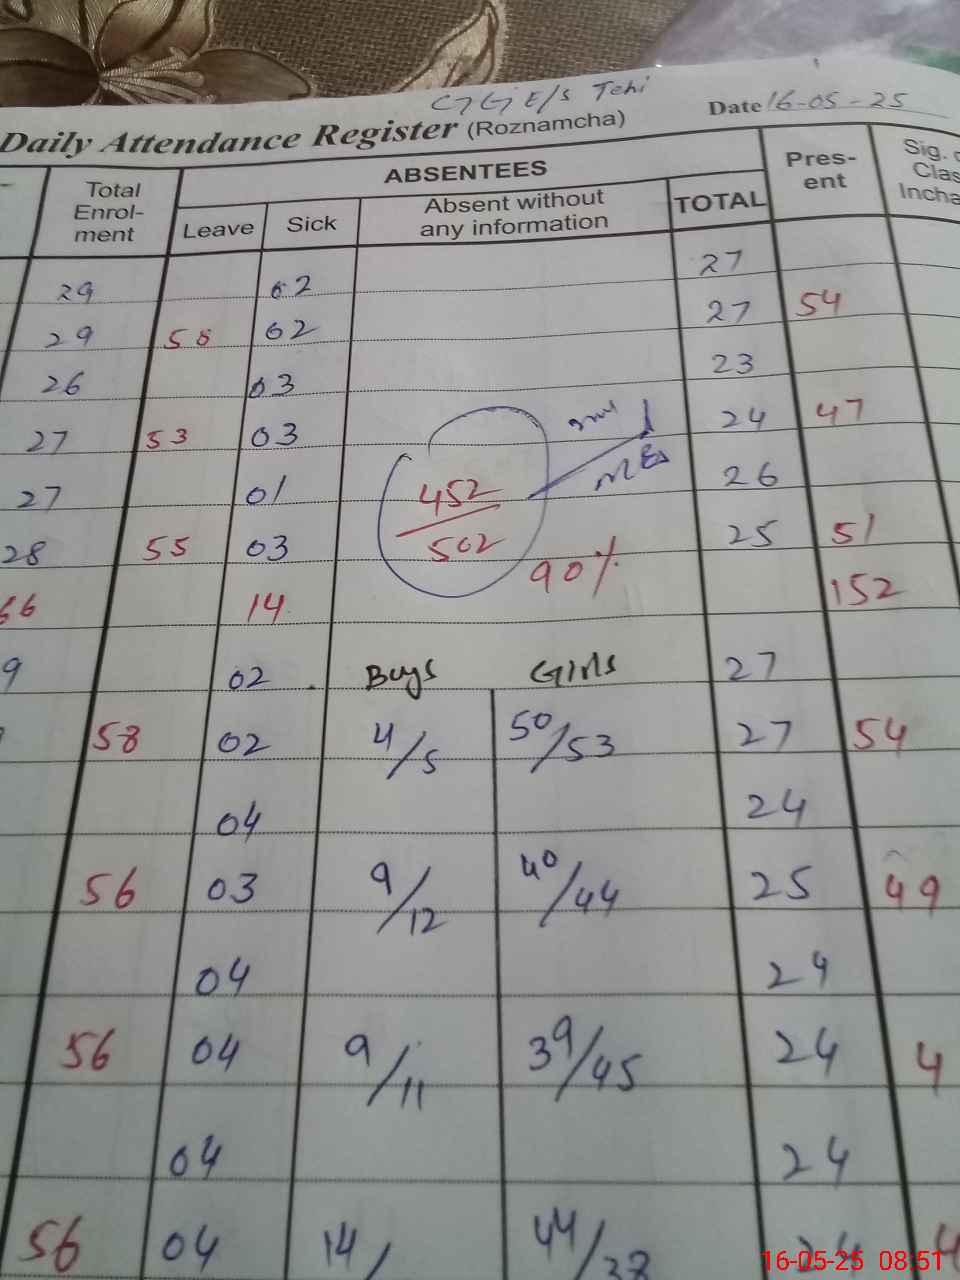 GGE/S Tehi
Daily Attendance Register (Roznamcha) Date 16-05-25
Total Enrol-ment ABSENTEES Pres-ent Sig.
Leave Sick Absent without any information TOTAL Clas
Incha
29 02 27
29 58 02 27 54
26 03 23
27 53 03 24 47
27 01 26
28 55 03 25 51
452
502
90%
66 14 152
9 02 Boys Girls 27
58 02 4/5 50/53 27 54
04 24
56 03 9/12 40/44 25 49
04 24
56 04 9/11 39/45 24 4
04 24
56 04 14/ 44/38 24 4
16-05-25 08:51